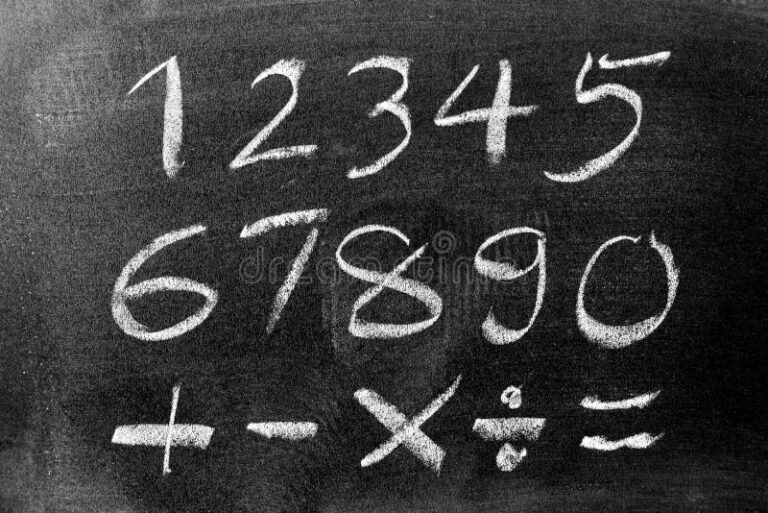 1 2 3 4 5
6 7 8 9 0
+ - × ÷ =
dreamstime